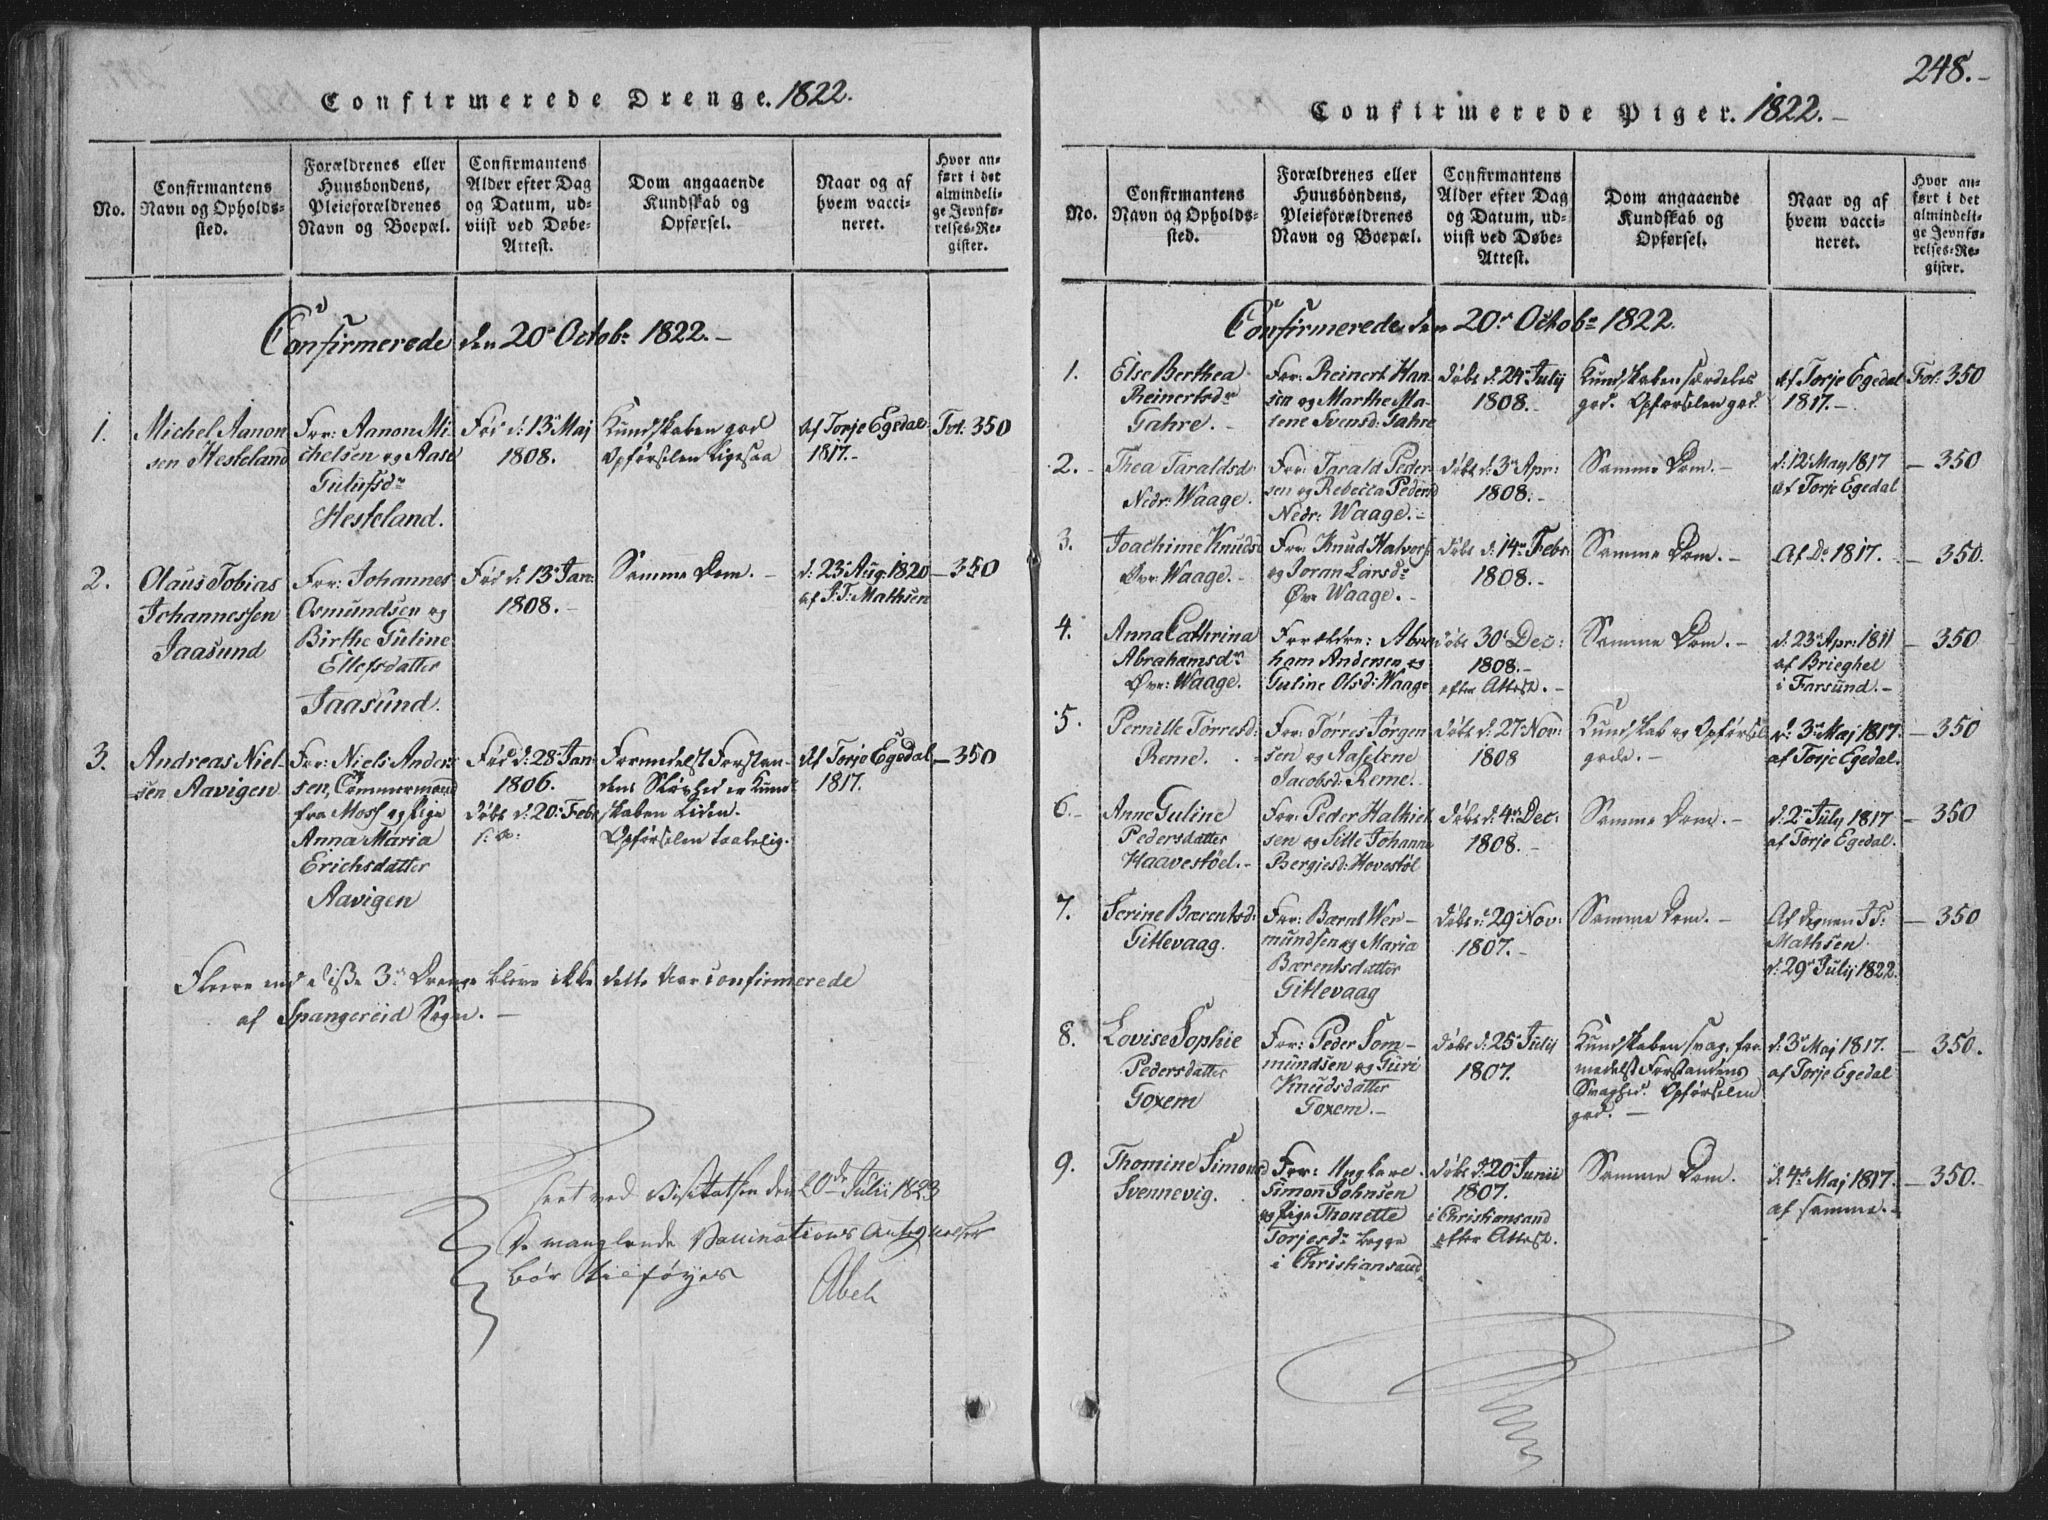 Confirmerede Drenge. 1822.
No.
Confirmantens
Navn og Opholds-
sted.
Forældrenes eller
Huusbondens,
Pleieforældrenes
Navn og Boepæl.
Confirmantens
Alder efter Dag
og Datum, ud-
viist ved Døbe-
Attest.
Dom angaaende
Kundskab og
Opførsel.
Naar og af
hvem vacci-
neret.
Hvor an-
ført i det
almindeli-
ge Jevnfø-
relses-Re-
gister.
Confirmerede den 20de Octobr 1822.-
1.
Michel Aanon
sen Hesteland
For: Aanon Mi
chelsen og Aase
Gulufsdr
Hesteland.
Fød d: 13de Maj
1808.
Kundskaben god
Opførselen Ligesaa
Af Torje Egedal
1817.-
Fol. 350
2.
Olaus Tobias
Johannessen
Jaasund
For: Johannes
Osmundsen og
Birthe Guline
Ellefsdatter
Jaasund.
Fød d: 13de Jan:
1808.-
Samme Dom. -
d: 23de Aug. 1820
af T: Mathsen
-350
3.
Andreas Niel-
sen Aavigen
For: Niels Ander
sen, Tømmermand
fra Moss og Pige
Anna Maria
Erichsdatter
Aavigen
Fød d: 28de Jan:
1806.
døbt d: 20de Febr
s: a:
Formedelst Forstan-
dens Sløvhed er Kund
skaben Liden.
Opførselen taalelig.
Af Torje Egedal
1817.
-350
Fleere end disse 3de Drenge bleve ikke dette Aar confirmerede
af Spangereid Sogn. -
seet ved Visitatsen den 20de Julii 1823
De manglende Vaccinations Antegnelser
bør tilføyes
Abel
248.-
Confirmerede Piger. 1822.-
No.
Confirmantens
Navn og Opholds-
sted.
Forældrenes eller
Huusbondens,
Pleieforældrenes
Navn og Boepæl.
Confirmantens
Alder efter Dag
og Datum, ud-
viist ved Døbe-
Attest.
Dom angaaende
Kundskab og
Opførsel.
Naar og af
hvem vacci-
neret.
Hvor an-
ført i det
almindeli-
ge Jevnfø-
relses-Re-
gister.
Confirmerede den 20de Octobr 1822.
1.
Else Berthea
Reinertsdr
Gahre.
For: Reinert Han
sen og Marthe Ma-
lene Svensd: Gahre
døbt d: 24de July
1808.-
Kundskaben særdeles
god. Opførselen god.
Af Torje Egedal
1817.-
Fol: 350
2.-
Thea Taraldsd:
Nedr: Waage.
For: Tarald Peder
sen og Rebecca Pedersd
Nedr: Waage.-
døbt d: 3de Apr:
1808.-
Samme Dom.-
d: 12te May 1817
af Torje Egedal
- 350
3.
Joachime Knuds
Øvr: Waage.-
For: Knud Halvors
og Joran Larsdr
Øvr Waage.-
døbt d: 14de Febr:
1808.-
Samme Dom.-
Af Do 1817.
- 350.
4.
Anna Cathrina
Abrahamsdr
Øvr: Waage.
Forældre: Abra
ham Andersen og
Guline Olsd: Waage
døbt 30te Dec:
1808.-
efter Attest.-
Samme Dom.-
d: 23de Apr: 1811
af Brieghel
i Farsund.-
- 350
5.
Pernille Tørresd:
Reme.
For: Tørres Jørgen
sen og Aaselene
Jacobsd: Reme.
døbt d: 27de Nov:
1808
Kundskab og Opførsel
gode.-
d: 3de Maj 1817
af Torje Egedal.
- 350
6.-
Anne Guline
Pedersdatter
Haavestøel.-
For: Peder Hathiel
sen og Sille Johanne
Bergjesd: Hovestøl
døbt d: 4de Dec:
1808.-
Samme Dom.-
d: 2den July 1817
af Torje Egedal.
- 350
7.
Serine Bærentsd:
Gitlevaag.
For: Bærnt Wer-
mundsen og Maria
Bærentsdatter
Gitlevaag
døbt d: 29de Nov:
1807.-
Samme Dom.-
Af Degnen T:
Mathsen
d: 29de Julij 1822.
- 350
8.
Lovise Sophie
Pedersdatter
Goxem
For: Peder Tom-
mundsen og Guri
Knudsdatter
Goxem.-
døbt d: 25de Julij
1807.
Kundskaben svag, for
medelst Forstandens
Svaghed. Opførselen
god.-
d: 3de Maj 1817.
af Torje Egedal
- 350.
9.
Thomine Simonsd
Svennevig.
For: Ungkarl
Simon Johnsen
og Pige Thonette
Torjesdr begge
i Christiansand.
døbt d: 20de Junii
1807.
i Christiansand
efter Attest.
Samme Dom.
d: 4de Maj 1817.
af samme.-
- 350.-